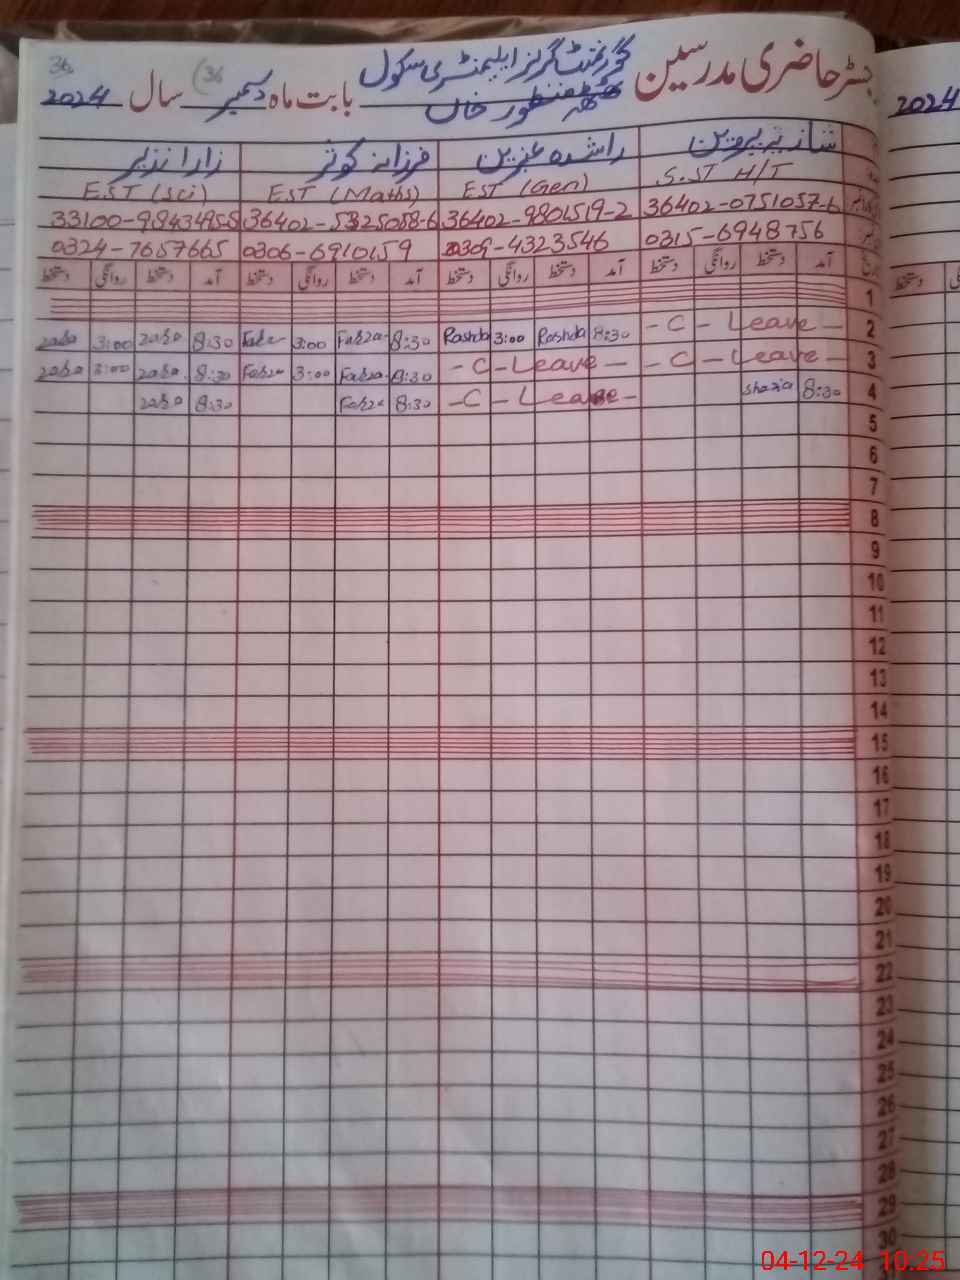 رجسٹر حاضری مدرسین گورنمنٹ گرلز ایلیمنٹری سکول بابت ماہ دسمبر سال 2024
36
(36
منظور خاں
2024
شازیہ پروین راشدہ عنبرین فرزانہ کوثر زارا نذیر
S.ST H/T EST (Gen) EST (Maths) EST (Sci)
36402-0751057-6 36402-9801519-2 36402-5325058-6
0315-6948756 0309-4323546 0306-6910159 0324-7657665
آمد دستخط روانگی دستخط آمد دستخط روانگی دستخط آمد دستخط روانگی دستخط آمد دستخط روانگی دستخط
1
2 - C - Leave - 8:30 Rashda 3:00 Rashda 8:30 Farza 3:00 8:30 zara 3:00 zara
3 - C - Leave - - C - Leave - 8:30 Farza 3:00 Farza 8:30 zara 3:00 zara
4 8:30 Shazia - C - Leave - 8:30 Farza 8:30 zara
5
6
7
8
9
10
11
12
13
14
15
16
17
18
19
20
21
22
23
24
25
26
27
28
29
30
دستخط
04-12-24 10:25